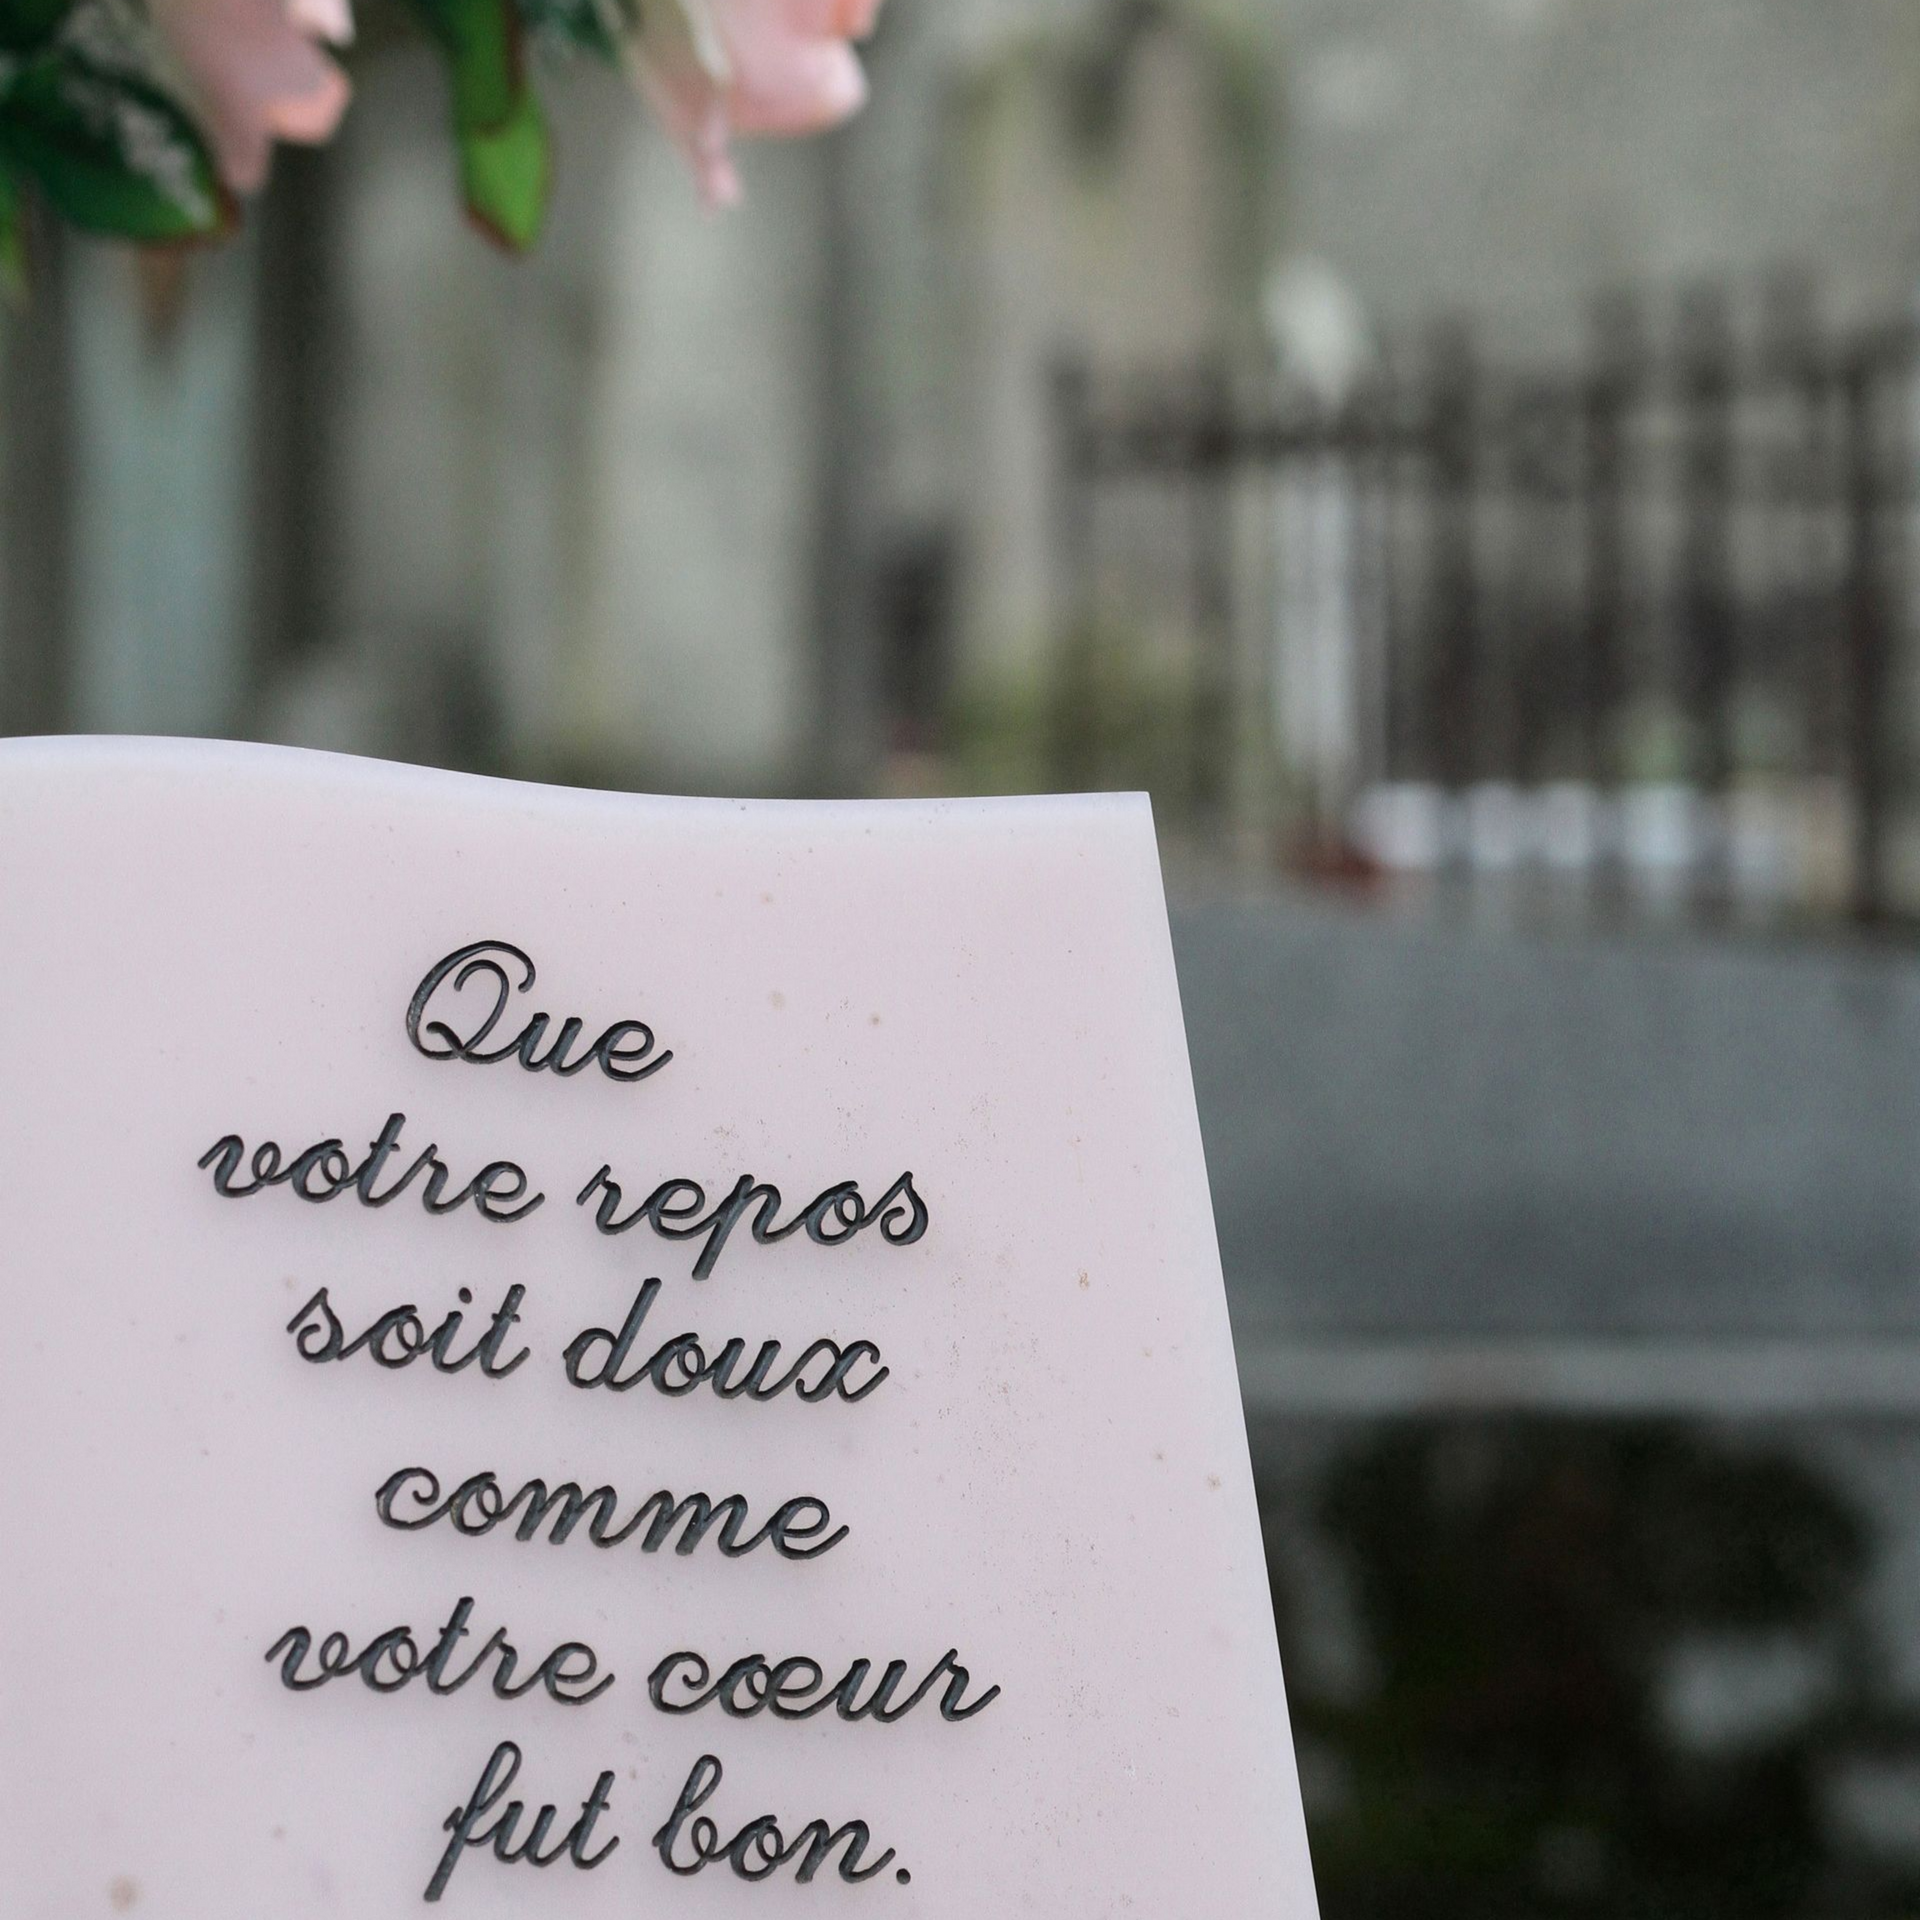 Que
votre repos
soit doux
comme
votre cœur
fut bon.